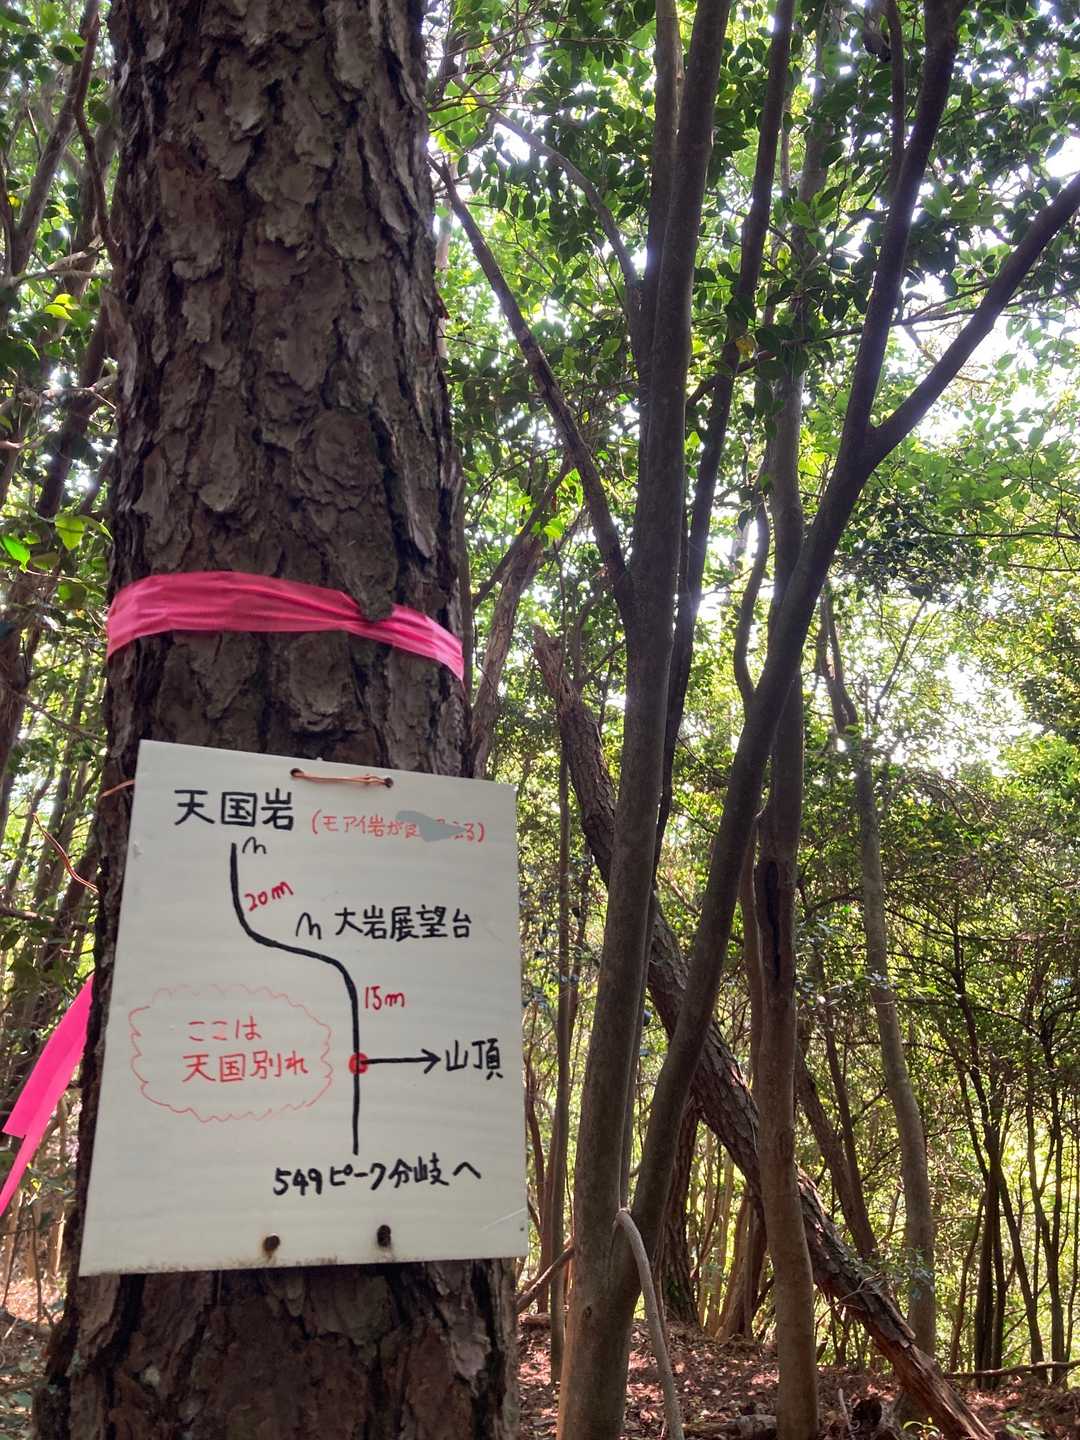 天国岩 (モアイ岩が
20m
大岩展望台
15m
ここは
天国別れ
山頂
549ピーク分岐へ